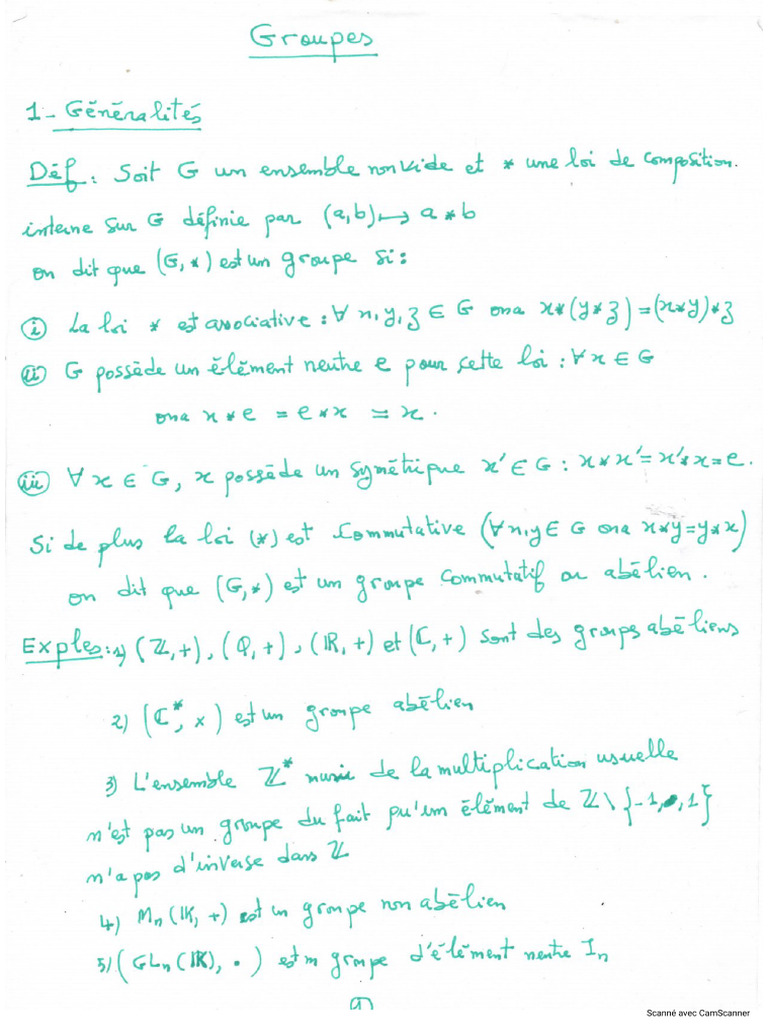 Groupes
1- Généralités
Déf : Soit G un ensemble non vide et * une loi de composition.
interne sur G définie par (a,b) ↦ a * b
on dit que (G,*) est un groupe si :
(i) La loi * est associative : ∀ x,y,z ∈ G ona x*(y*z)=(x*y)*z
(ii) G possède un élément neutre e pour cette loi : ∀ x ∈ G
ona x * e = e * x = x.
(iii) ∀ x ∈ G, x possède un symétrique x' ∈ G : x*x'=x'*x=e.
Si de plus la loi (*) est commutative (∀ x,y ∈ G ona x*y=y*x)
on dit que (G,*) est un groupe commutatif ou abélien.
Exples : 1) (ℤ,+), (ℚ,+), (ℝ,+) et (ℂ,+) sont des groups abéliens
2) (ℂ*, ×) est un groupe abélien
3) L'ensemble ℤ* muni de la multiplication usuelle
n'est pas un groupe du fait qu'un élément de ℤ\{-1,1}
n'a pas d'inverse dans ℤ
4) Mn(IK, +) est un groupe non abélien
5) (GLn(IK), .) est un groupe d'élément neutre In
(1)
Scanné avec CamScanner